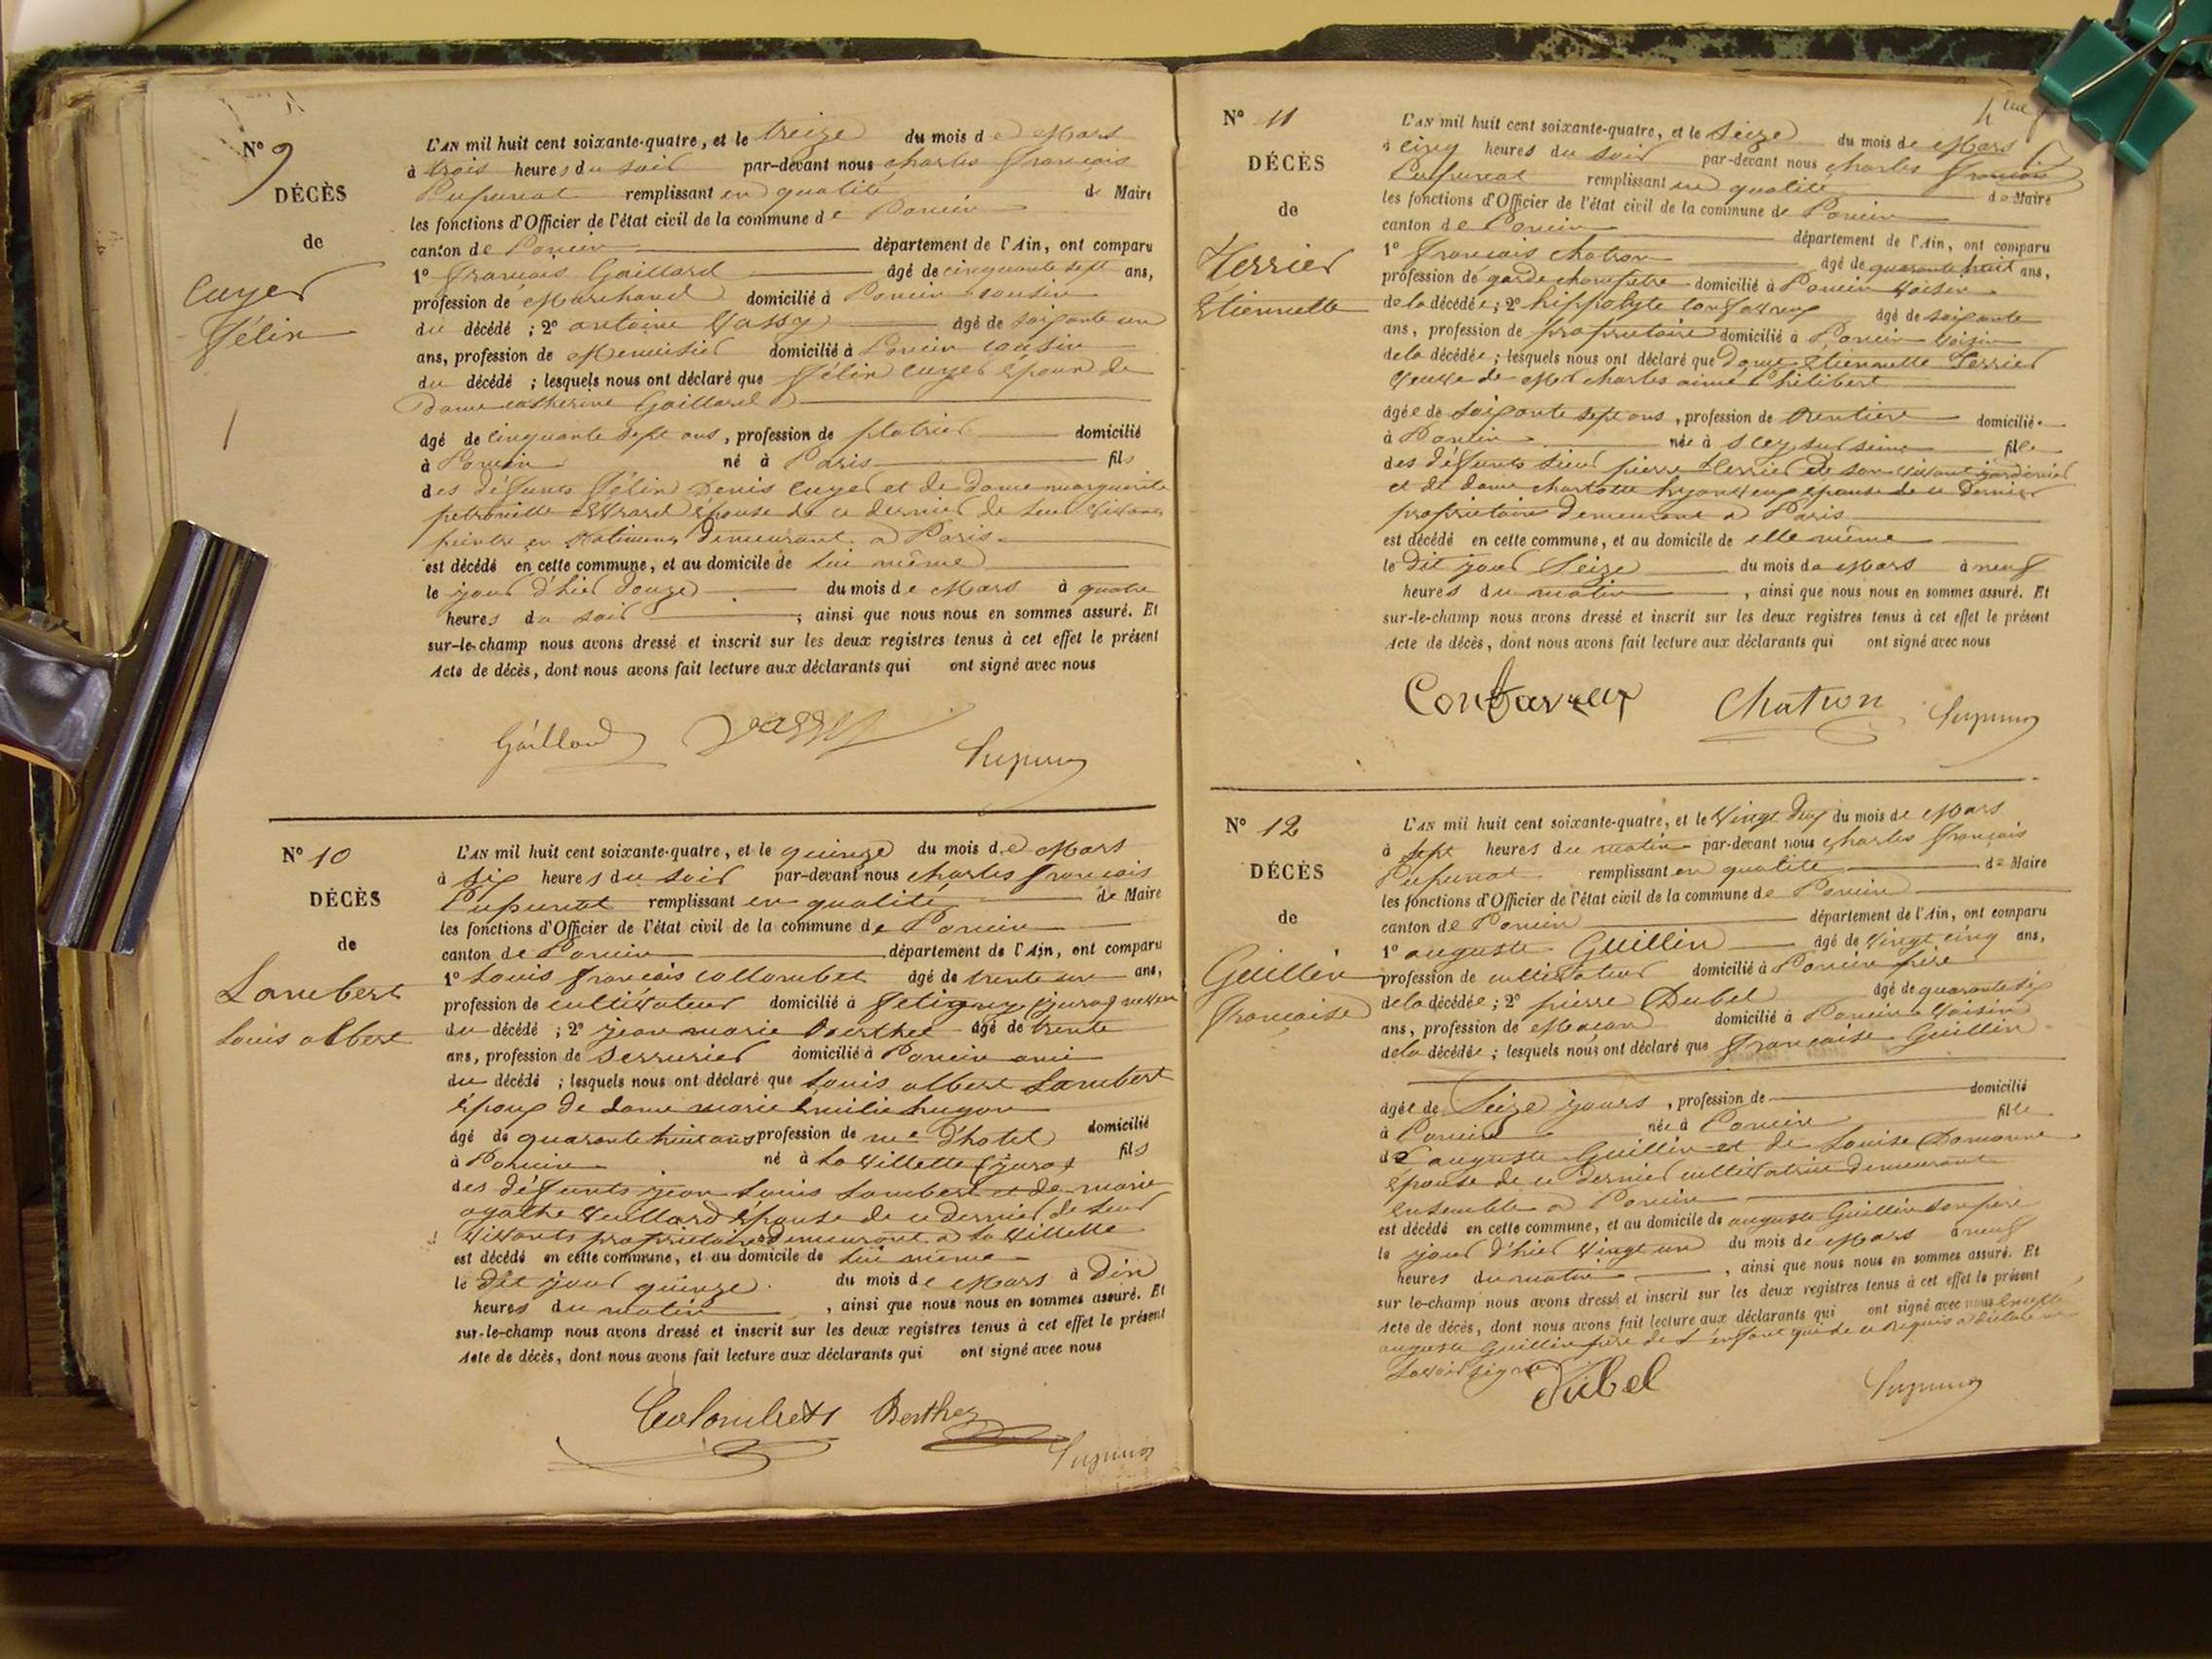 N° 9
DÉCÈS
de
Cuyer
Félix
L'AN mil huit cent soixante-quatre, et le treize du mois de Mars
à trois heures du soir par-devant nous charles françois
Pupunat remplissant en qualité de Maire
les fonctions d'Officier de l'état civil de la commune de Poncin
canton de Poncin département de l'Ain, ont comparu
1° françois Gaillard âgé de cinquante sept ans,
profession de Marchand domicilié à Poncin cousin
du décédé ; 2° antoine Vassy âgé de soixante un
ans, profession de Menuisier domicilié à Poncin cousin
du décédé ; lesquels nous ont déclaré que félix Cuyer époux de
Dame catherine Gaillard
âgé de cinquante sept ans, profession de platrier domicilié
à Poncin né à Paris fils
des défunts félix Denis Cuyer et de dame marguerite
petronille Evrard épouse de ce dernier de leur vivant
peintre en batiments demeurant a Paris
est décédé en cette commune, et au domicile de lui même
le jour d'hier douze du mois de Mars à quatre
heures du soir , ainsi que nous nous en sommes assuré. Et
sur-le-champ nous avons dressé et inscrit sur les deux registres tenus à cet effet le présent
Acte de décès, dont nous avons fait lecture aux déclarants qui ont signé avec nous
Gaillard Vassy Pupunat
N° 10
DÉCÈS
de
Lambert
Louis albert
L'AN mil huit cent soixante-quatre, et le quinze du mois de Mars
à six heures du soir par-devant nous charles françois
Pupunat remplissant en qualité de Maire
les fonctions d'Officier de l'état civil de la commune de Poncin
canton de Poncin département de l'Ain, ont comparu
1° Louis françois collombet âgé de trente un ans,
profession de cultivateur domicilié à fetigny (jura) neveu
du décédé ; 2° jean marie Berthet âgé de trente
ans, profession de serrurier domicilié à Poncin ami
du décédé ; lesquels nous ont déclaré que Louis albert Lambert
époux de dame marie Emilie hugon
âgé de quarante huit ans profession de me d'hotel domicilié
à Poncin né à la villette (jura) fils
des défunts jean Louis Lambert et de marie
agathe Vuillard épouse de ce dernier de leur
vivants propriétaires demeurant a la villette
est décédé en cette commune, et au domicile de lui même
le dit jour quinze du mois de Mars à dix
heures du matin , ainsi que nous nous en sommes assuré. Et
sur-le-champ nous avons dressé et inscrit sur les deux registres tenus à cet effet le présent
Acte de décès, dont nous avons fait lecture aux déclarants qui ont signé avec nous
Collombet Berthet
Pupunat
N° 11
DÉCÈS
de
Terrier
Etiennette
L'AN mil huit cent soixante-quatre, et le seize du mois de Mars
à cinq heures du soir par-devant nous charles françois
Pupunat remplissant en qualité de Maire
les fonctions d'Officier de l'état civil de la commune de Poncin
canton de Poncin département de l'Ain, ont comparu
1° françois chatron âgé de quarante huit ans,
profession de garde champêtre domicilié à Poncin voisin
de la décédée ; 2° hippolyte confavreux âgé de soixante
ans, profession de propriétaire domicilié à Poncin voisin
de la décédée ; lesquels nous ont déclaré que dame etiennette Terrier
veuve de Mr charles aimé Philibert
âgée de soixante sept ans, profession de rentière domiciliée
à Poncin née à scey sur seine fille
des défunts sieur pierre Terrier de son vivant jardinier
et de dame charlotte épouse de ce dernier
propriétaires demeurant a Paris
est décédé en cette commune, et au domicile de elle même
le dit jour seize du mois de Mars à neuf
heures du matin , ainsi que nous nous en sommes assuré. Et
sur-le-champ nous avons dressé et inscrit sur les deux registres tenus à cet effet le présent
Acte de décès, dont nous avons fait lecture aux déclarants qui ont signé avec nous
Confavreux Chatron Pupunat
N° 12
DÉCÈS
de
Guillin
françoise
L'AN mil huit cent soixante-quatre, et le vingt deux du mois de Mars
à sept heures du matin par-devant nous charles françois
Pupunat remplissant en qualité de Maire
les fonctions d'Officier de l'état civil de la commune de Poncin
canton de Poncin département de l'Ain, ont comparu
1° auguste Guillin âgé de vingt cinq ans,
profession de cultivateur domicilié à Poncin père
de la décédée ; 2° pierre Dubel âgé de quarante six
ans, profession de Maçon domicilié à Poncin voisin
de la décédée ; lesquels nous ont déclaré que françoise Guillin
âgée de seize jours , profession de domicilié
à Poncin née à Poncin fille
de auguste Guillin et de Louise
épouse de ce dernier cultivatrice demeurant
ensemble a Poncin
est décédé en cette commune, et au domicile de auguste Guillin son père
le jour d'hier vingt un du mois de Mars à neuf
heures du matin , ainsi que nous nous en sommes assuré. Et
sur le-champ nous avons dressé et inscrit sur les deux registres tenus à cet effet le présent
Acte de décès, dont nous avons fait lecture aux déclarants qui ont signé avec nous
auguste Guillin père de l'enfant que de ce requis a déclaré ne
savoir signer
Dubel Pupunat